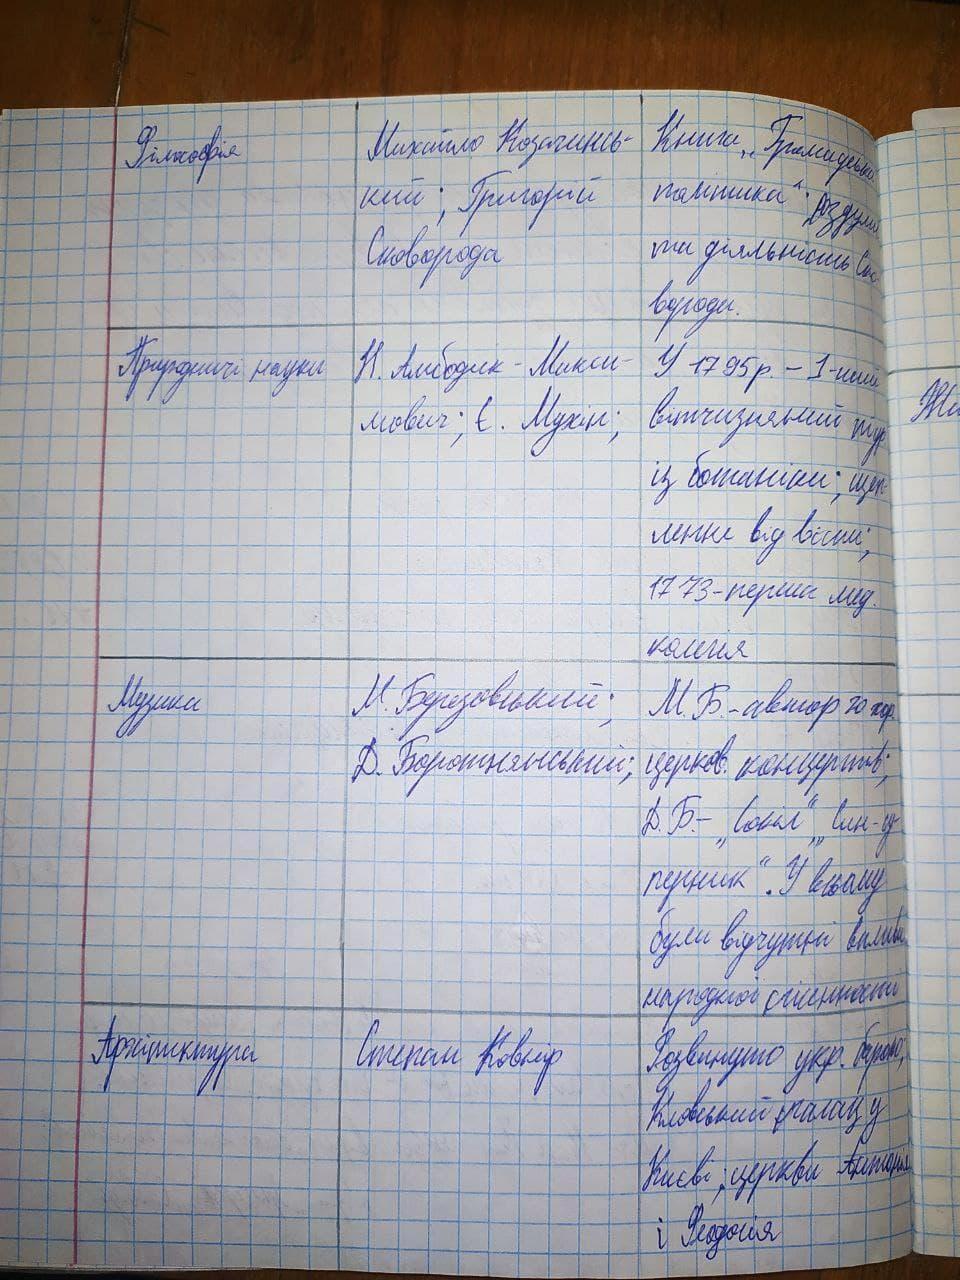 Філософія
Михайло Козачинсь-
кий; Григорій
Сковорода
Книга „Громадська
політика“; Роздуми
та діяльність Ско-
вороди.
Природничі науки
Н. Амбодик-Макси-
мович; Є. Мухін;
У 1795р. – 1-ший
вітчизняний підр.
із ботаніки; щеп-
лення від віспи;
1773-перша мед.
колегія
Музика
М. Березовський;
Д. Бортнянський;
М.Б.-автор хор.
церков. концертів;
Д.Б.- „Сокіл“ „Син-су-
перник“. У всьому
були відчутні впливи
народної пісенності
Архітектура
Степан Ковнір
Розвинуто укр. бароко;
Кловський палац у
Києві; церкви Антонія
і Феодосія
Жи